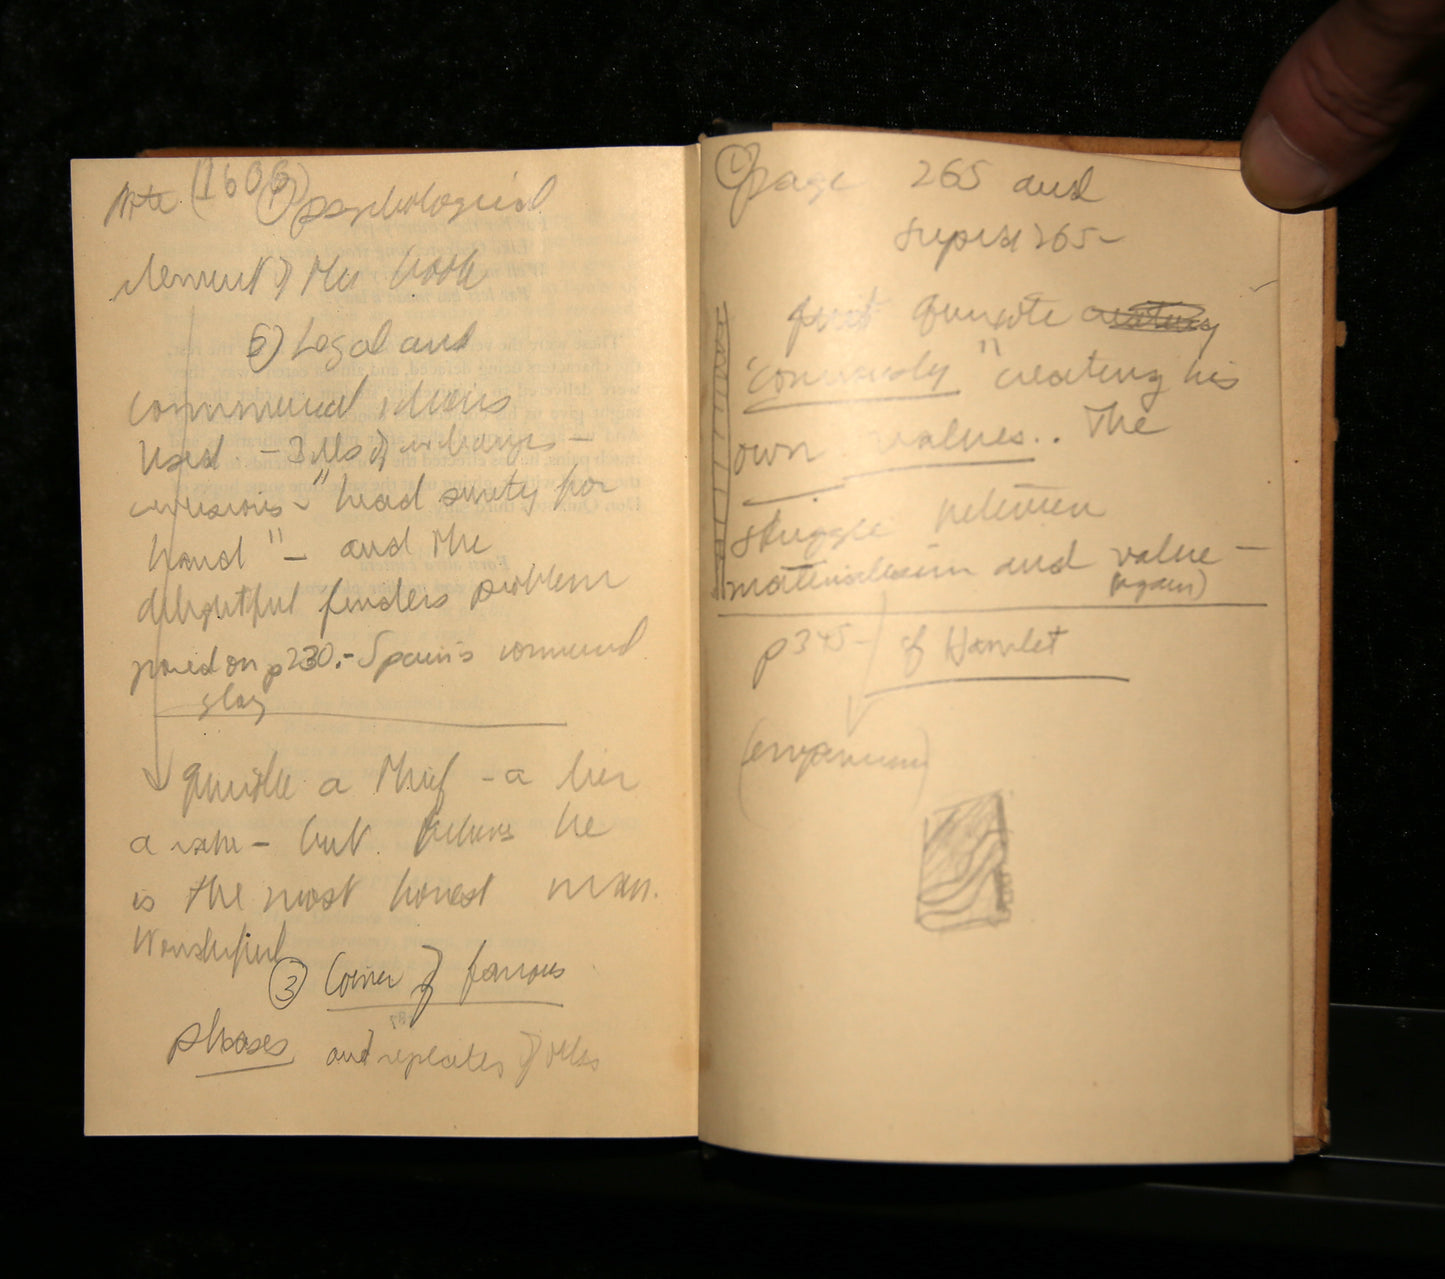 Note (1606) ① psychological
element of the book
6) Legal and
commercial
Used. - Bills of exchange -
"head surety for
hand" - and the
delightful finders problem
posed on p230. - Spain's commercial
Quixote a thief - a liar
a - but believes he
is the most honest man.
Wonderful
③ Coiner of famous
phrases and repeater of others
page 265 and
265 -
Quixote
"consciously" creating his
own values.. The
struggle between
materialism and value -
(again)
p345 - cf Hamlet